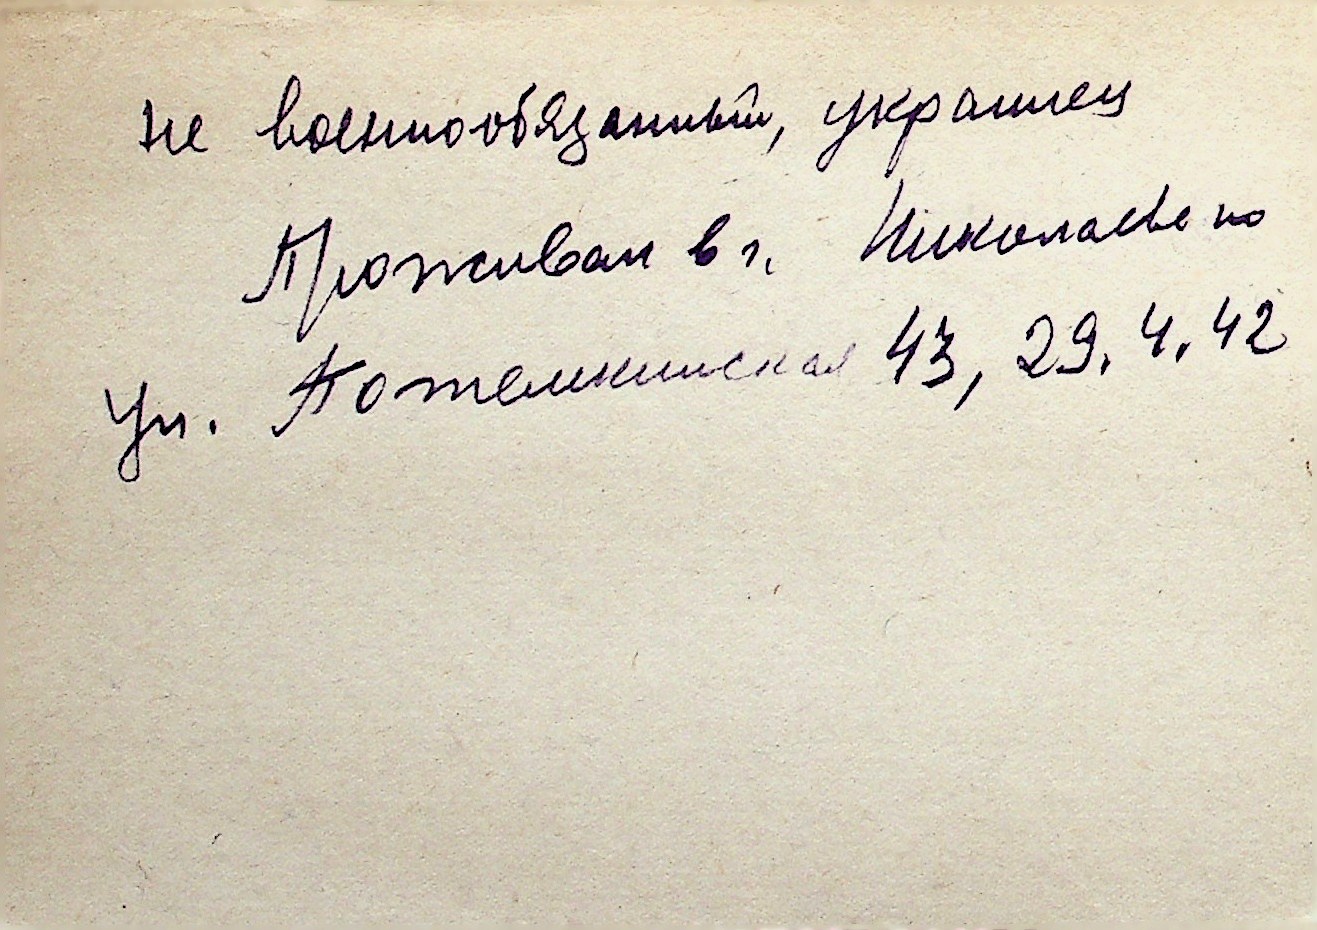 не военнообязанный, украинец
Проживал в г. Николаеве по
ул. Потемкинская 43, 29.4.42